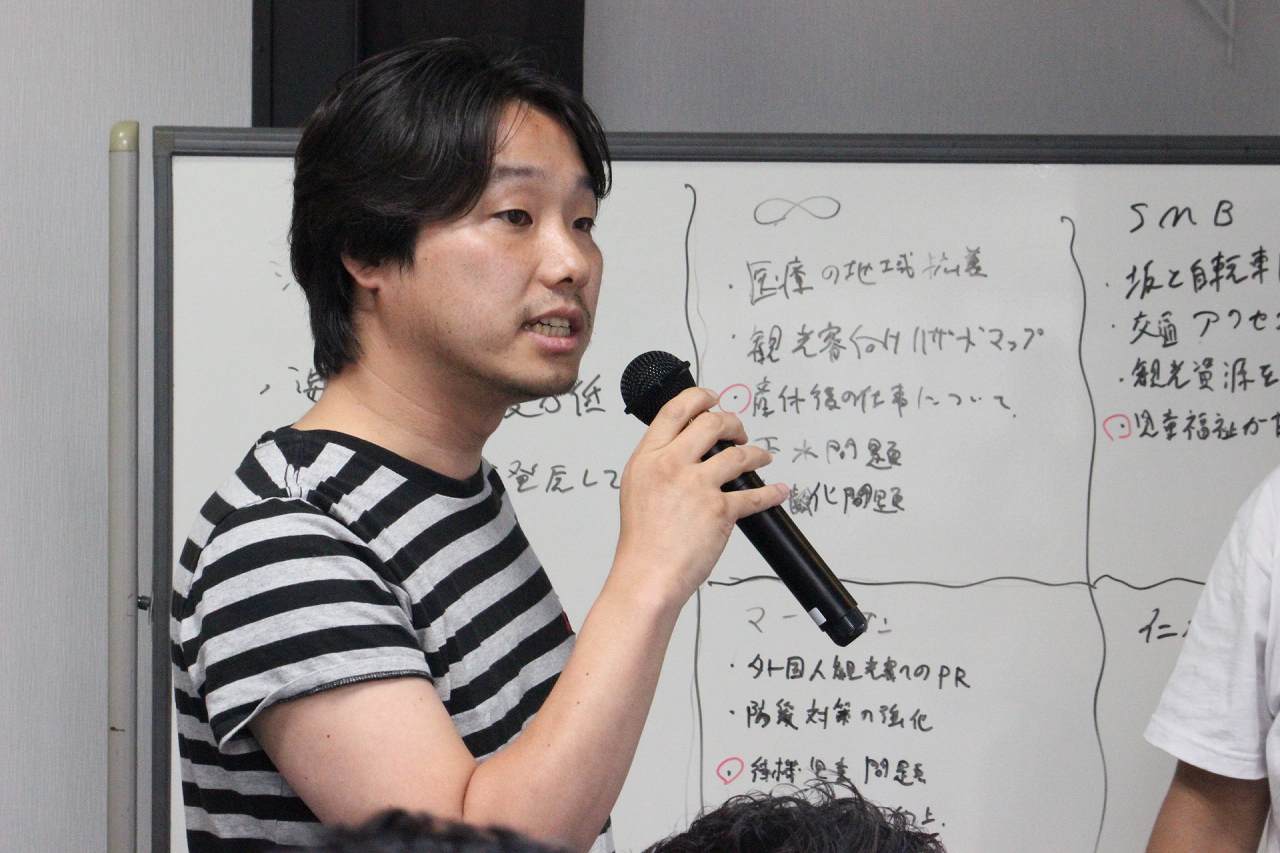 ∞
・医療の地域格差
・観光客向けハザードマップ
・産休後の仕事について.
下水問題
齢化問題
SMB
・坂と自転車
・交通アクセ
・観光資源を
・児童福祉が
発展して
・外国人観光客へのPR
・防災対策の強化
・待機児童問題
上.